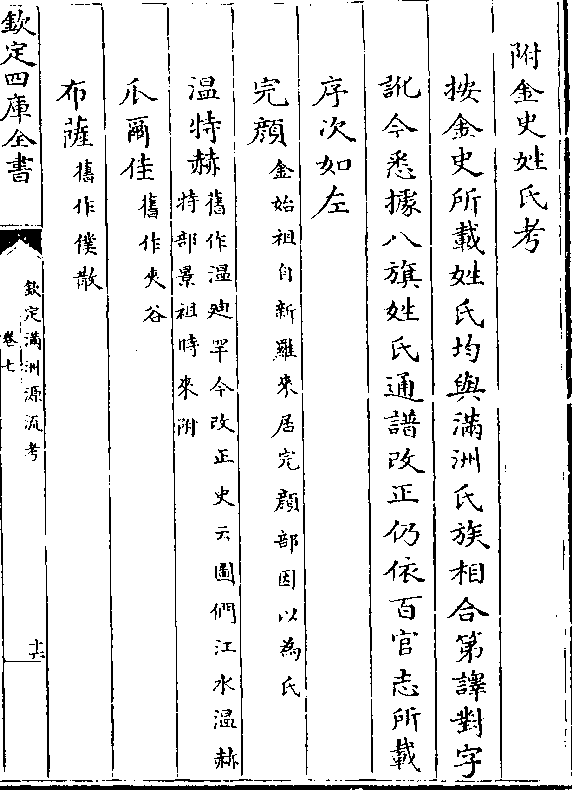 附金史姓氏考
按金史所載姓氏均與滿洲氏族相合第譯對字
訛今悉據八旗姓氏通譜改正仍依百官志所載
序次如左
完顔金始祖自新羅來居完顔部因以為氏
温特赫舊作温廸罕今改正史云圖們江水温赫
特部景祖時來附
瓜爾佳舊作夾谷
布薩舊作僕散
欽定四庫全書
欽定滿洲源流考
卷七
十六